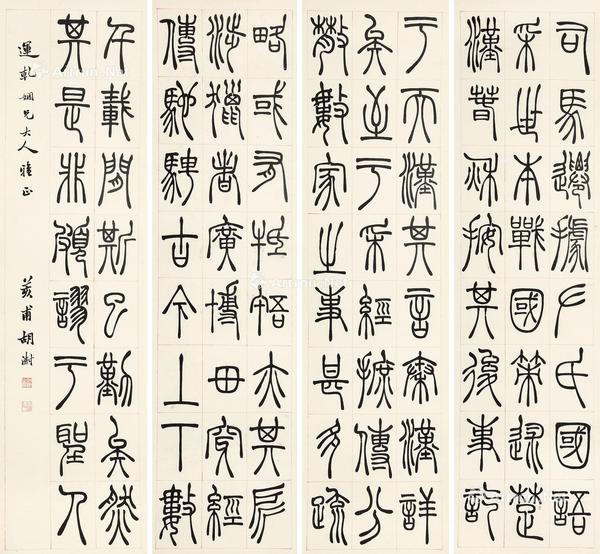 司馬遷據左氏國語
采世本戰國策述楚
漢春秋接其後事訖
于天漢其言秦漢詳
矣至于采經摭傳分
散數家之事甚多疏
略或有抵梧亦其所
涉獵者廣博毌穿經
傳馳騁古今上下數
千載間斯已勤矣然
其是非頗謬于聖人
運乾姻兄大人雅正 荄甫胡澍